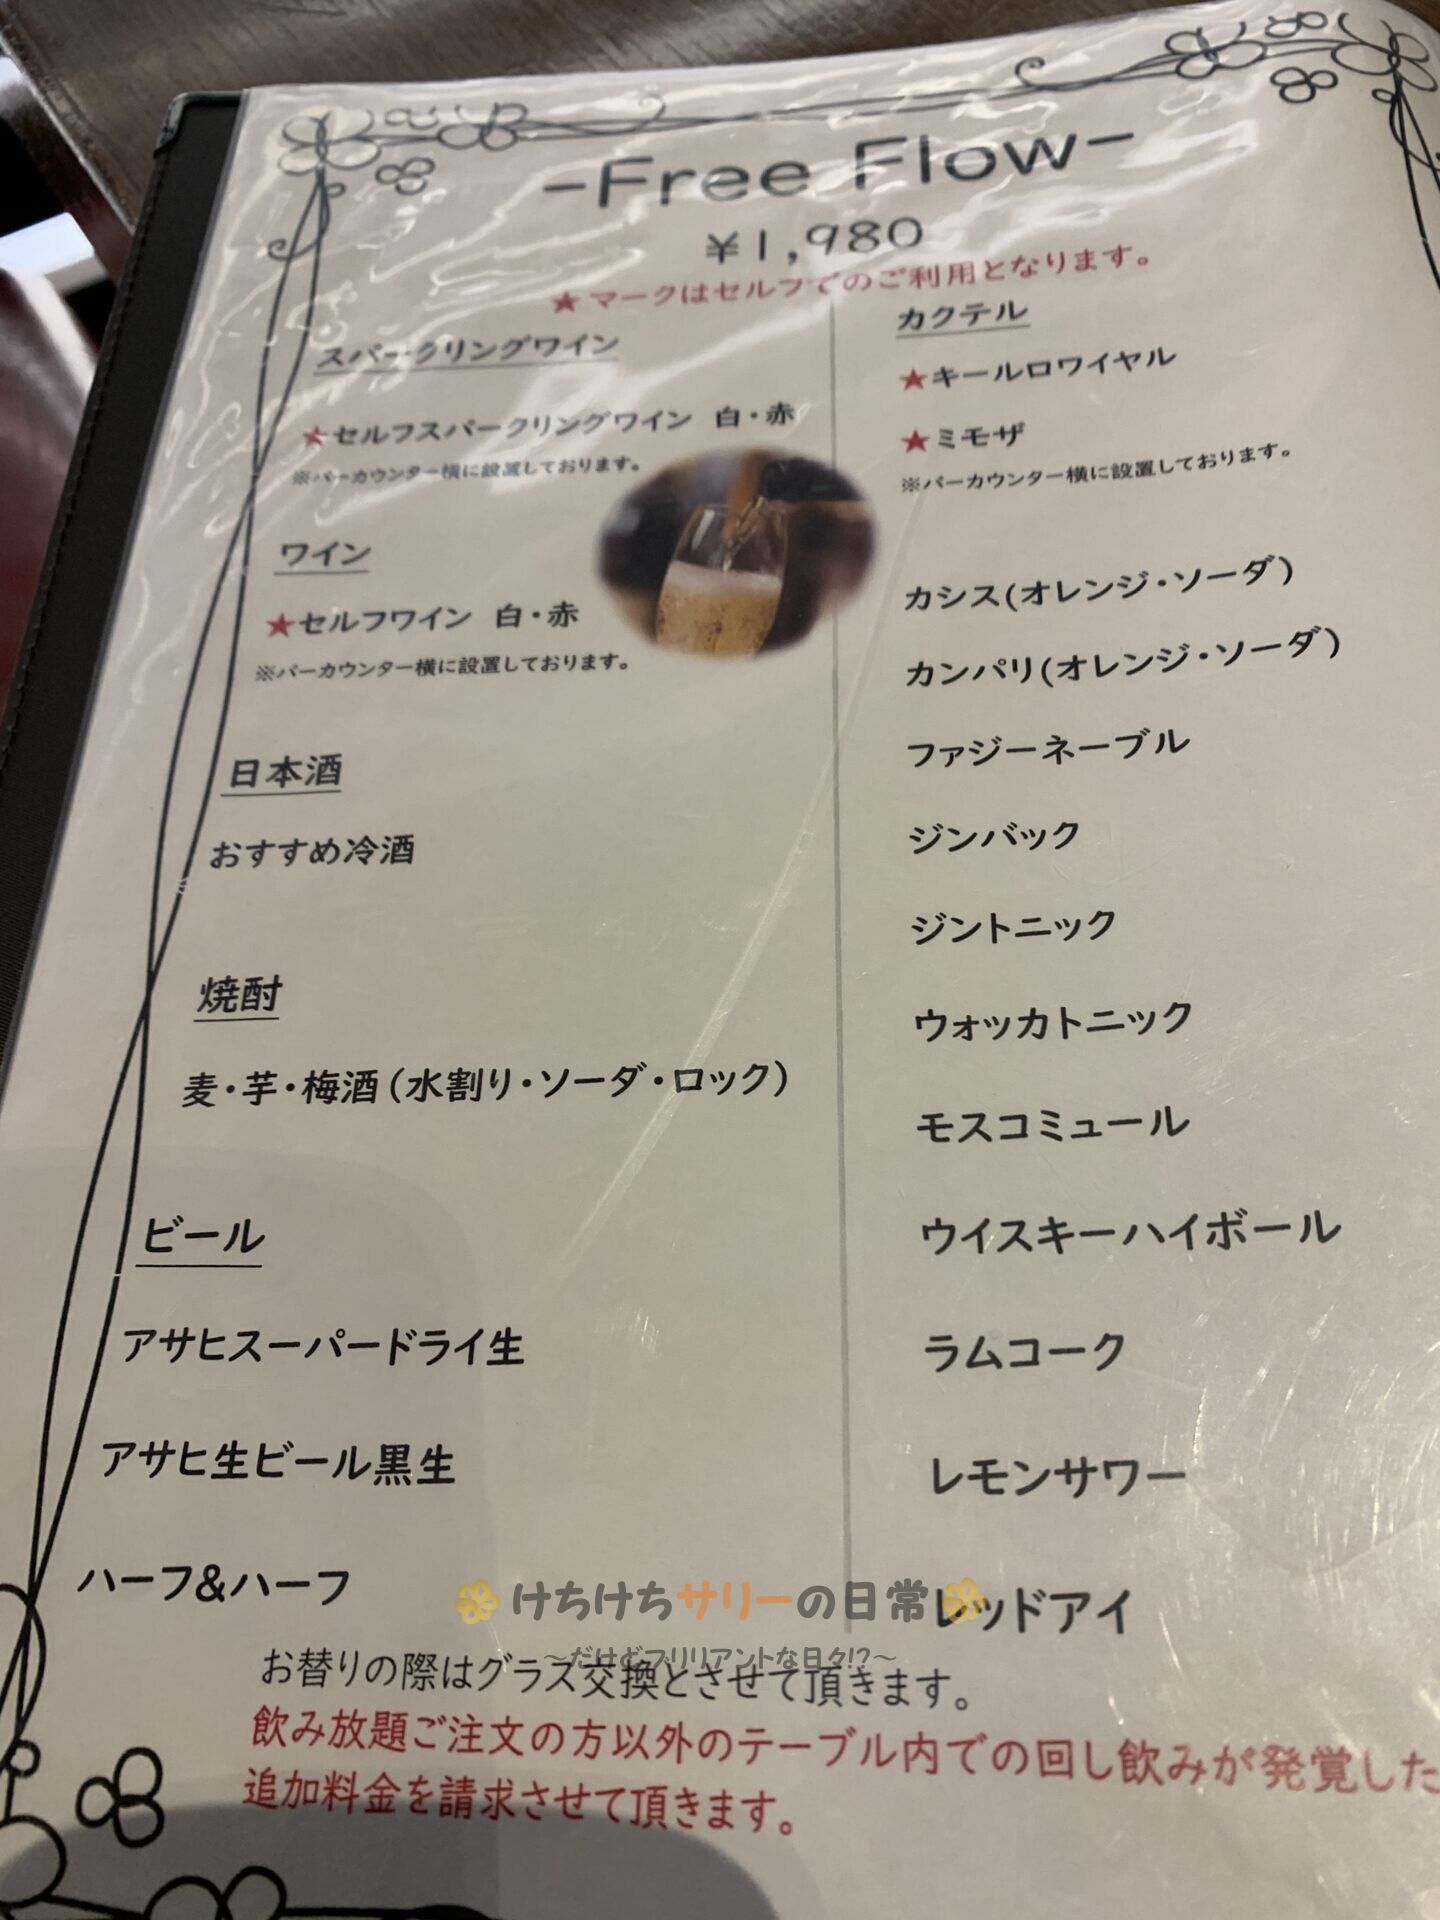 -Free Flow-
¥1,980
★マークはセルフでのご利用となります。
スパークリングワイン
★セルフスパークリングワイン 白・赤
※バーカウンター横に設置しております。
ワイン
★セルフワイン 白・赤
※バーカウンター横に設置しております。
日本酒
おすすめ冷酒
焼酎
麦・芋・梅酒(水割り・ソーダ・ロック)
ビール
アサヒスーパードライ生
アサヒ生ビール黒生
ハーフ&ハーフ
カクテル
★キールロワイヤル
★ミモザ
※バーカウンター横に設置しております。
カシス(オレンジ・ソーダ)
カンパリ(オレンジ・ソーダ)
ファジーネーブル
ジンバック
ジントニック
ウォッカトニック
モスコミュール
ウイスキーハイボール
ラムコーク
レモンサワー
レッドアイ
けちけちサリーの日常
~だけどブリリアントな日々!?~
お替りの際はグラス交換とさせて頂きます。
飲み放題ご注文の方以外のテーブル内での回し飲みが発覚した
追加料金を請求させて頂きます。